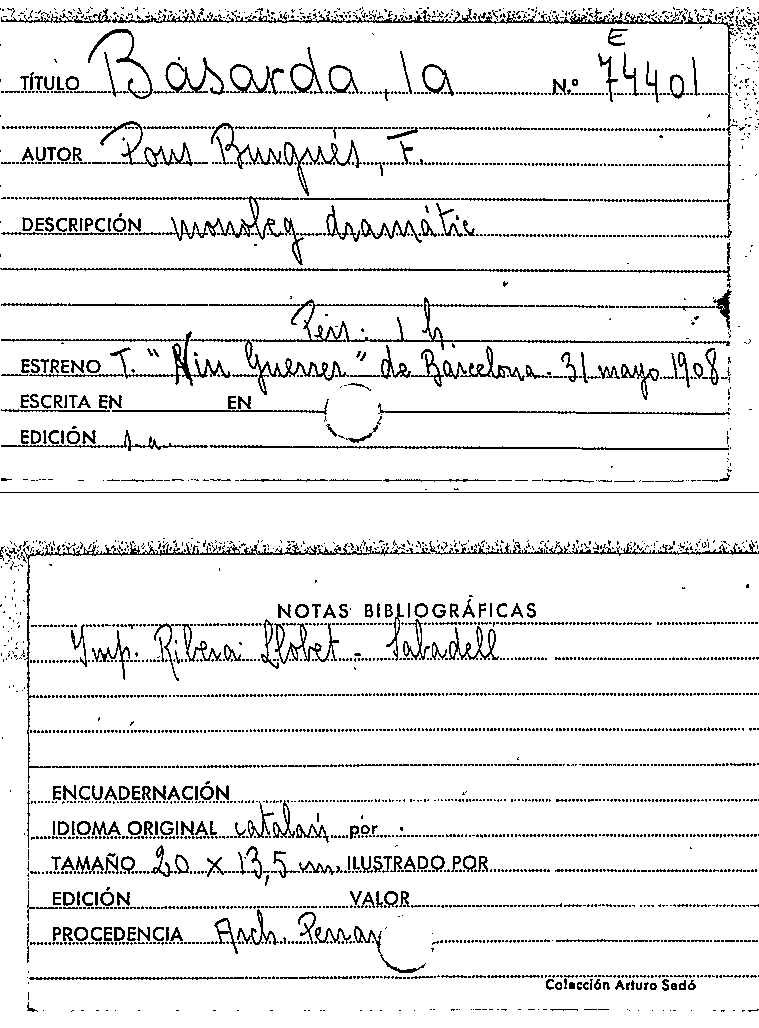 E
TÍTULO Basarda, la N.º 74401
AUTOR Pons Burgués, F.
DESCRIPCIÓN monoleg dramátic
Pers: 1 h.
ESTRENO T. "Niu Guerrer" de Barcelona. 31 mayo 1908
ESCRITA EN EN
EDICIÓN s.a.
NOTAS BIBLIOGRÁFICAS
Imp. Ribera Llobet - Sabadell
ENCUADERNACIÓN
IDIOMA ORIGINAL catalán por
TAMAÑO 20 x 13,5 cm. ILUSTRADO POR
EDICIÓN VALOR
PROCEDENCIA Arch.
Colección Arturo Sedó